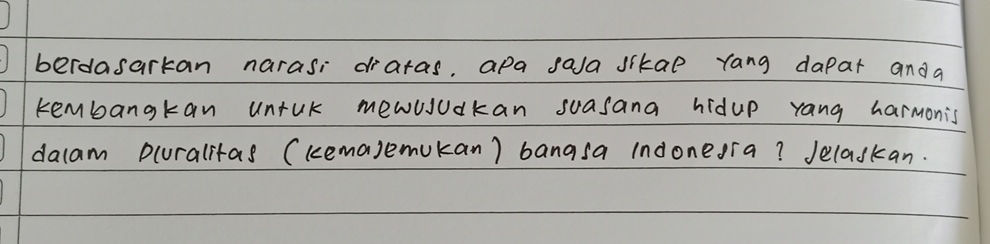 berdasarkan narasi diatas, apa saja sikap yang dapat anda
kembangkan untuk mewujudkan suasana hidup yang harmonis
dalam pluralitas (kemajemukan) bangsa indonesia? Jelaskan.